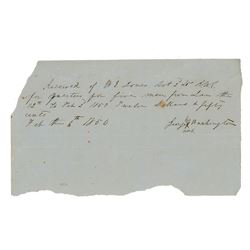 Received of W J Jones
for quarters for five men from Jan the
12th to Feb 2 1850 Twelve Dollars & fifty
cents
Feb the 6th 1850 George Washington